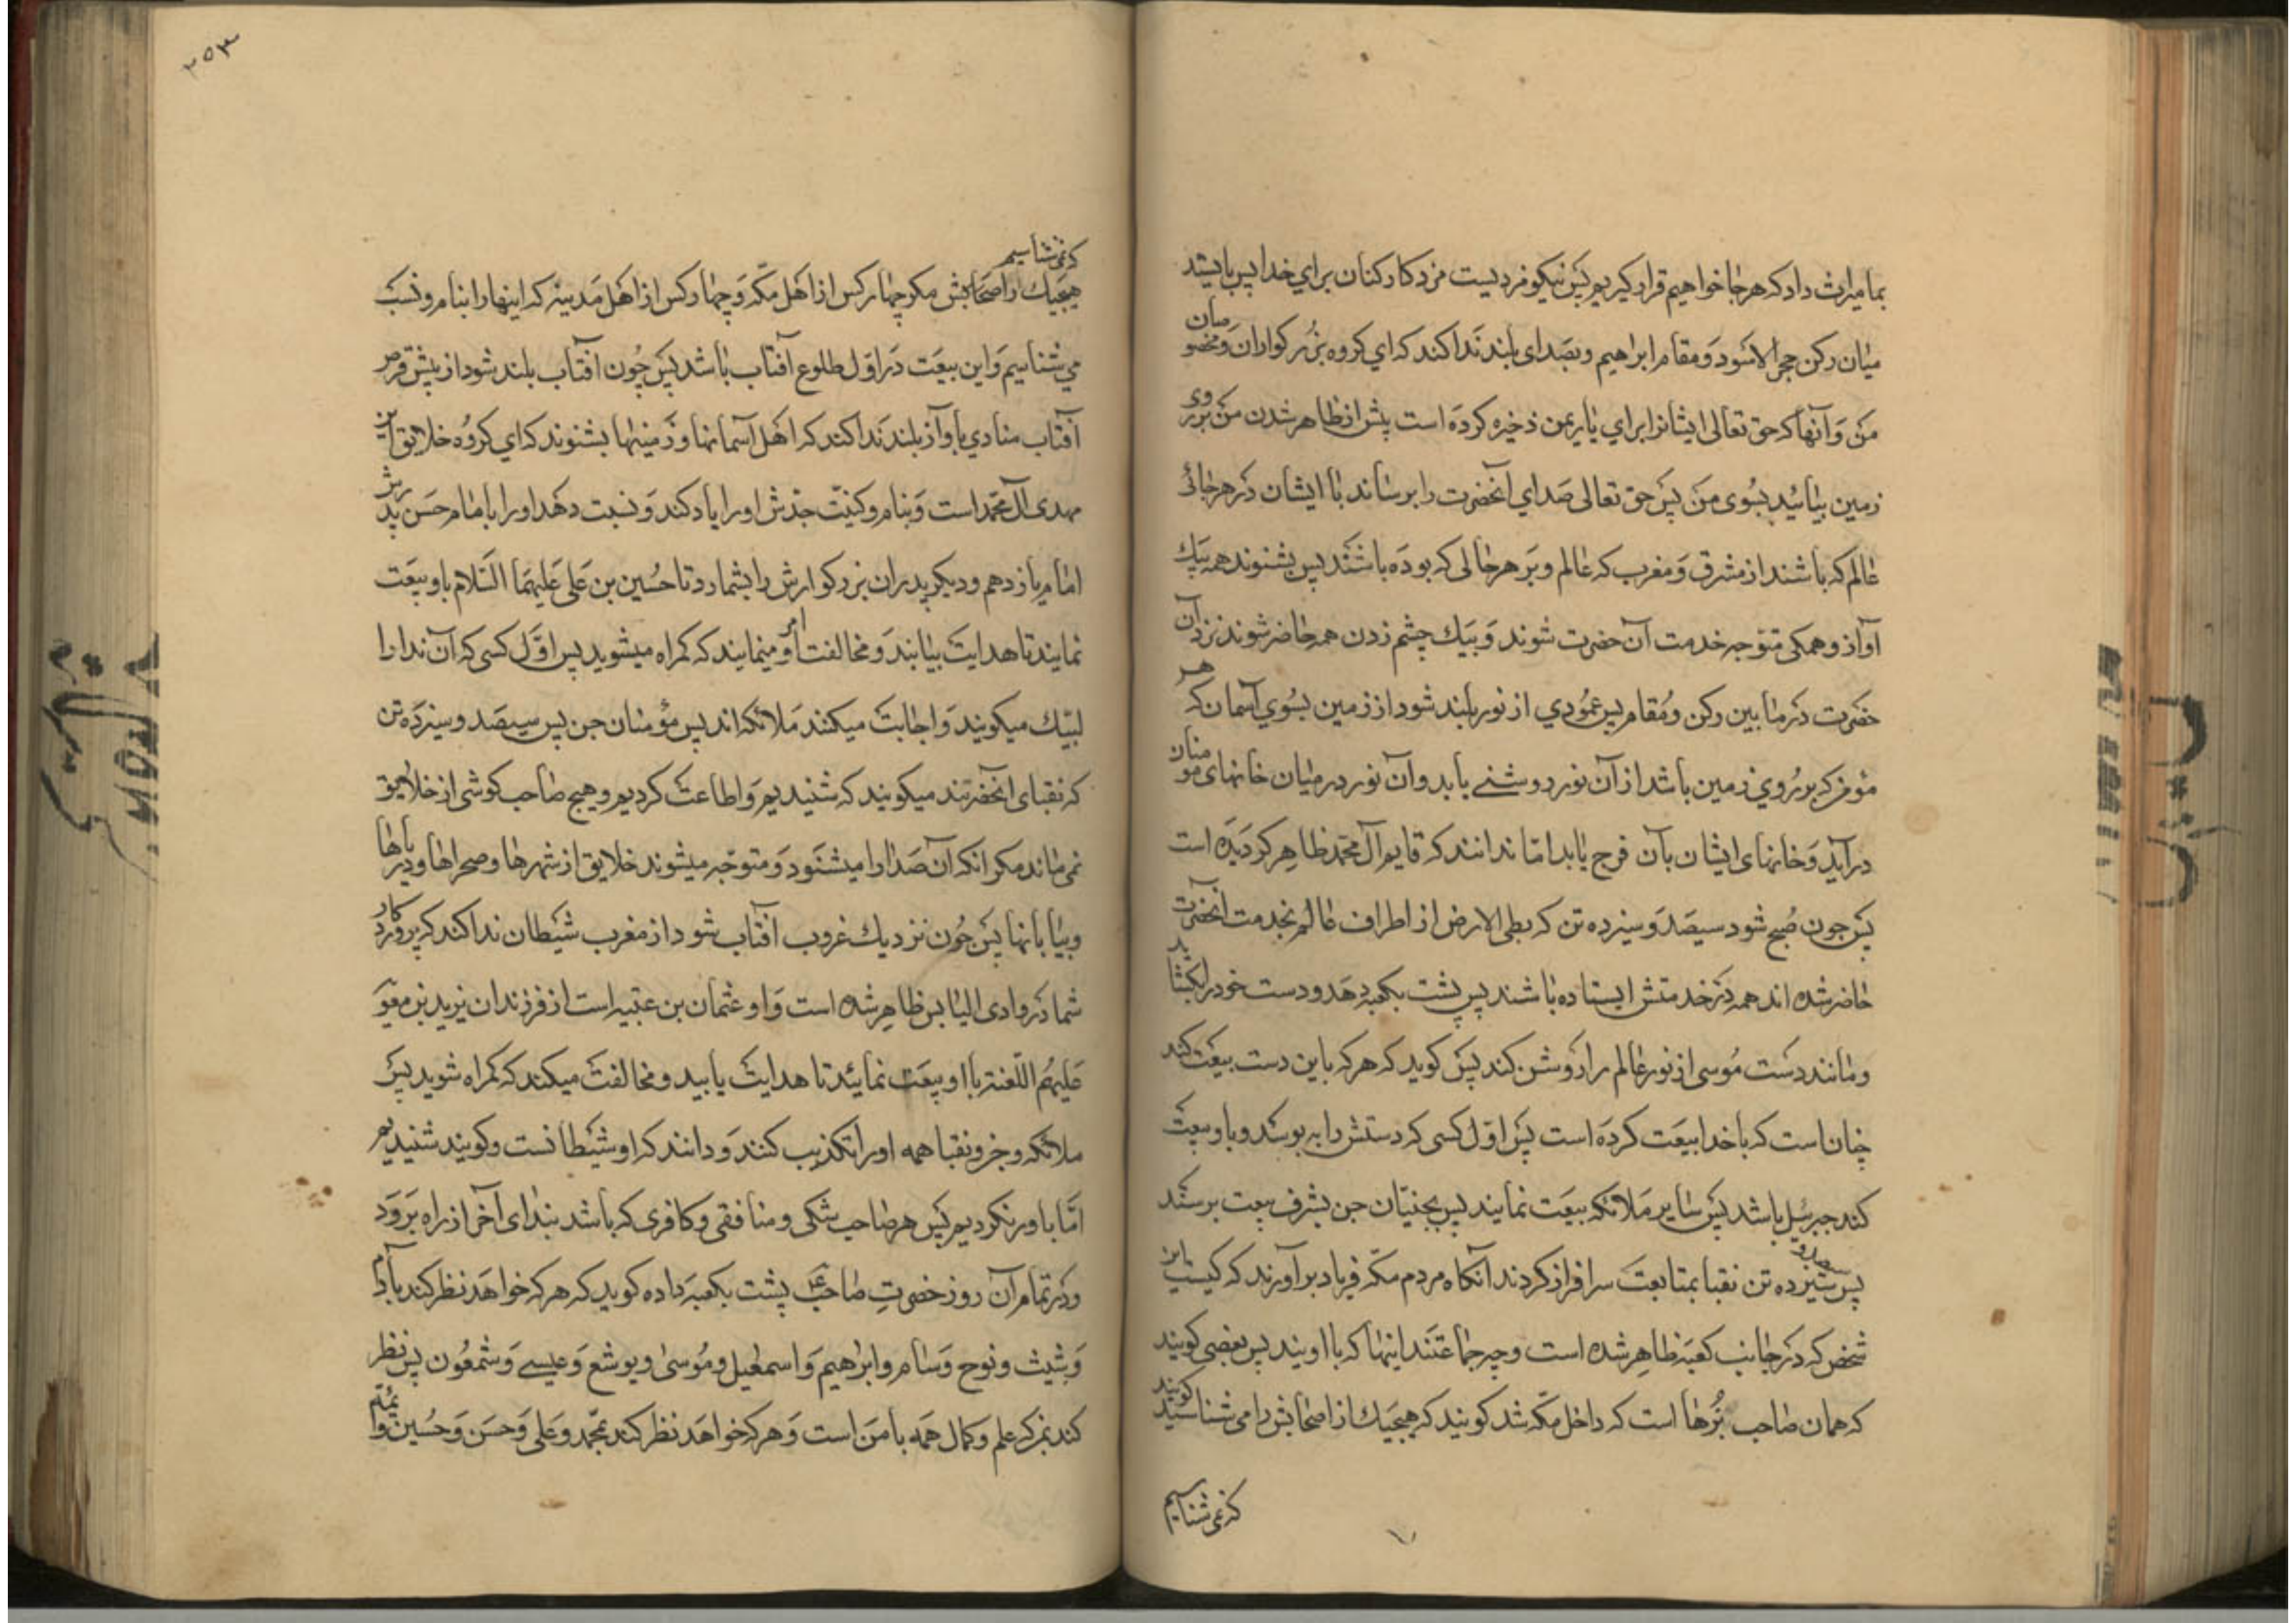 بما میراث داد که هرجا خواهیم قرار گیریم پس نیکو مزدیست مزد کارکنان برای خدا پس بایستد
میان رکن حجر الاسود و مقام ابراهیم و بصدای بلند ندا کند که ای کروه بزرکواران و مخصوصان
من و آنها که حق تعالی ایشانرا برای یاری من ذخیره کرده است پیش از ظاهر شدن من بر روی
زمین بیائید بسوی من پس حق تعالی صدای آنحضرت را برساند با ایشان در هر جائی
عالم که باشند از مشرق و مغرب که عالم و بر هر حالی که بوده باشند پس بشنوند همه بیک
آواز و همکی متوجه خدمت آن حضرت شوند و بیک چشم زدن همه حاضر شوند نزد آن
حضرت در مابین رکن و مقام پس عمودی از نور بلند شود از زمین بسوی آسمان که هر
مؤمن که بر روی زمین باشد از آن نور روشنی یابد و آن نور در میان خانهای مؤمنان
درآید و خانهای ایشان بآن فرج یابد امّا ندانند که قایم آل محمد ظاهر کردیده است
پس چون صبح شود سیصد و سیزده تن که بطی الارض از اطراف عالم بخدمت آنحضرت
حاضر شده اند همه در خدمتش ایستاده باشند پس پشت بکعبه دهد و دست خود را بکشاید
و مانند دست موسی از نور عالم را روشن کند پس کوید که هرکه باین دست بیعت کند
چنان است که با خدا بیعت کرده است پس اوّل کسی که دستش را ببوسد و با او بیعت
کند جبرئیل باشد پس سایر ملائکه بیعت نمایند پس نجنیان جن بشرف بیعت برسند
پس سیصد و سیزده تن نقبا بمتابعت سرافراز کردند آنکاه مردم مکّه فریاد برآورند که کیست این
شخص که در جانب کعبه ظاهر شده است و چه جماعتند اینها که با اویند پس بعضی کویند
که همان صاحب بزها است که داخل مکّه شد کویند که هیچیک از اصحابش را می شناسید کویند
که نمی شناسیم
۲۵۳
که نمی شناسیم
هیچیک از اصحابش مکر چهار کس از اهل مکّه و چهار کس از اهل مدینه که اینها را بنام و نسب
می شناسیم و این بیعت در اوّل طلوع آفتاب باشد پس چون آفتاب بلند شود از پیش قرص
آفتاب منادی باواز بلند ندا کند که اهل آسمانها و زمینها بشنوند که ای کروه خلایق این
مهدی آل محمد است و بنام و کنیت جدش او را یاد کند و نسبت دهد او را بامام حسن پدرش
امام یازدهم و دیکر پدران بزرکوارش را بشمارد تا حسین بن علی علیهما السّلام با او بیعت
نمایند تا هدایت بیابند و مخالفت امر او منمایند که کمراه میشوید پس اوّل کسی که آن ندا را
لبّیک میکویند و اجابت میکنند ملائکه اند پس مؤمنان جن پس سیصد و سیزده تن
که نقبای آنحضرتند میکویند که شنیدیم و اطاعت کردیم و هیچ صاحب کوشی از خلایق
نمی ماند مکر انکه آن صدا را میشنود و متوجّه میشوند خلایق از شهرها و صحراها و دریاها
و بیابانها پس چون نزدیک غروب آفتاب شود از مغرب شیطان ندا کند که پروردکار
شما در وادی الیابس ظاهر شده است و او عثمان بن عتبه است از فرزندان یزید بن معویه
علیهم اللّعنة با او بیعت نمائید تا هدایت یابید و مخالفت میکند که کمراه شوید پس
ملائکه و جن و نقبا همه او را تکذیب کنند و دانند که او شیطانست و کویند شنیدیم
امّا باور نکردیم پس هر صاحب شکی و منافقی و کافری که باشد بندای آخر از راه برود
و در تمام آن روز حضرت صاحب ع پشت بکعبه داده کوید که هرکه خواهد نظر کند بآدم
و شیث و نوح و سام و ابراهیم و اسمعیل و موسی و یوشع و عیسی و شمعون پس نظر
کند بمن که علم و کمال همه با من است و هرکه خواهد نظر کند بمحمد و علی و حسن و حسین و ائمه